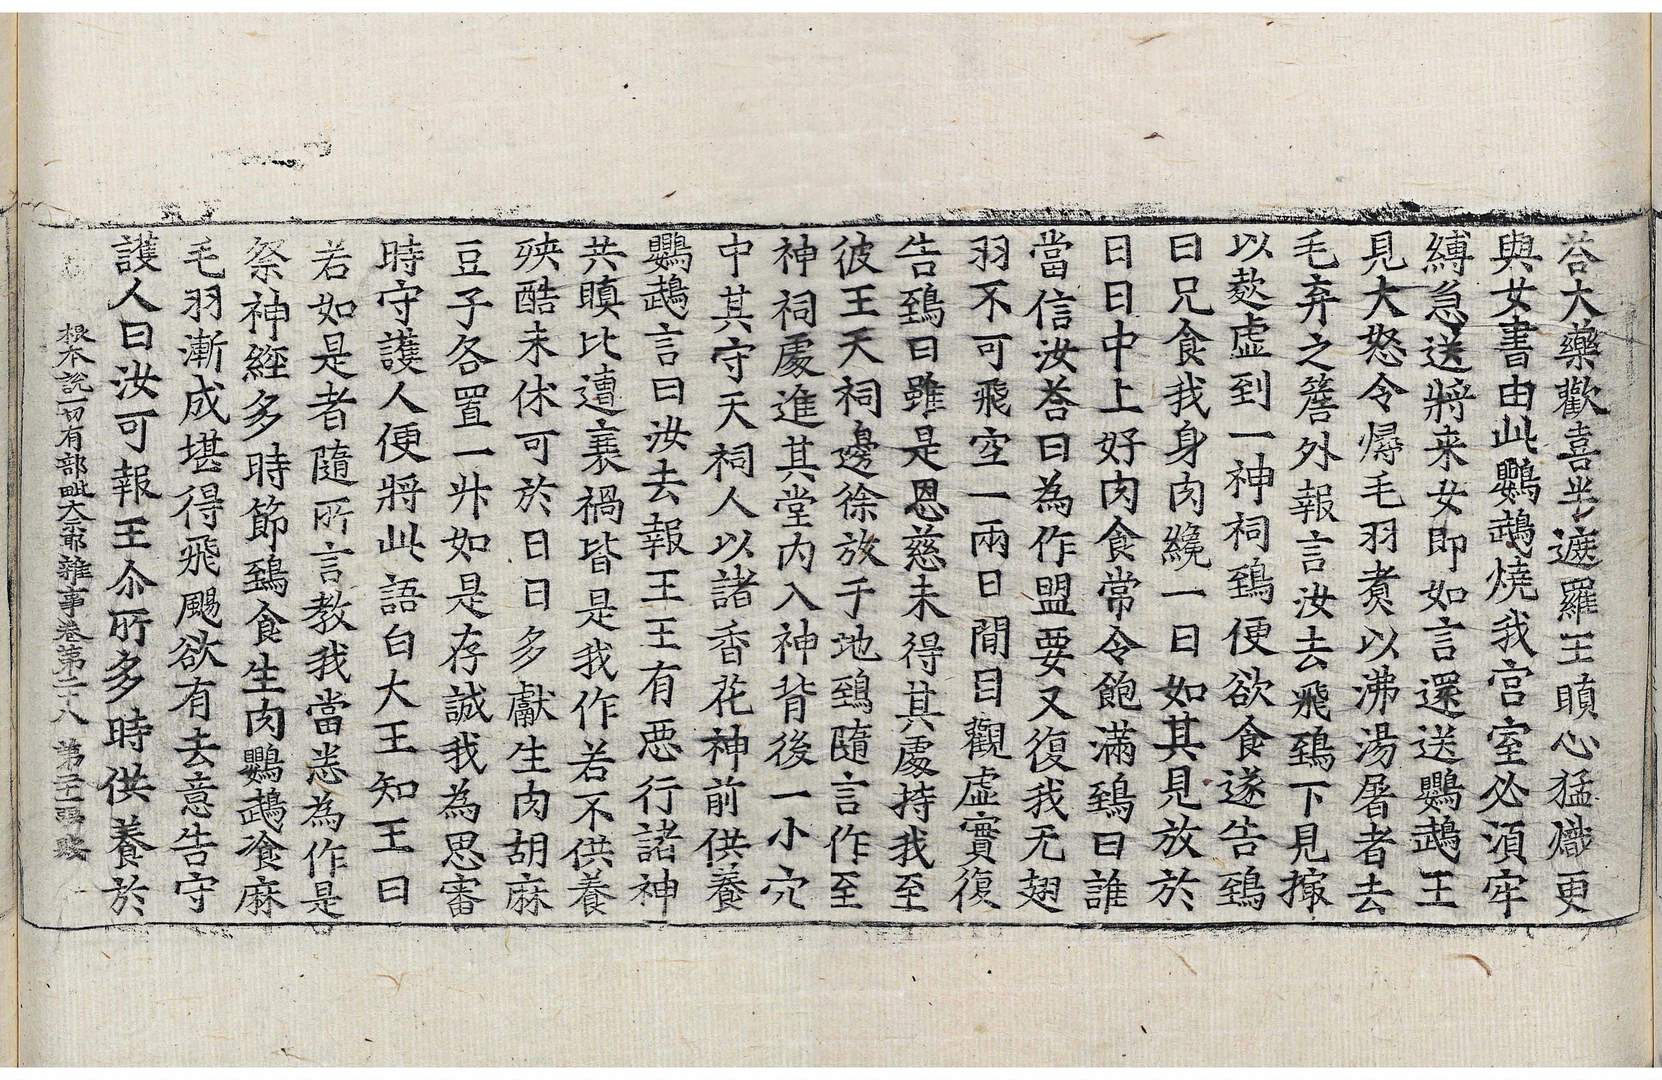 荅大藥歡喜半遮羅王瞋心猛熾更
與女書由此鸚鵡燒我宮室必須牢
縛急送將来女即如言還送鸚鵡王
見大怒令燖毛羽煮以沸湯屠者去
毛弃之簷外報言汝去飛鵄下見撮
以歘虛到一神祠鵄便欲食遂告鵄
曰兄食我身肉纔一日如其見放於
日日中上好肉食常令飽滿鵄曰誰
當信汝荅曰為作盟要又復我无翅
羽不可飛空一兩日間目觀虛實復
告鵄曰雖是恩慈未得其處持我至
彼王天祠邊徐放于地鵄隨言作至
神祠處進其堂內入神背後一小穴
中其守天祠人以諸香花神前供養
鸚鵡言曰汝去報王王有惡行諸神
共瞋比遭襄禍皆是我作若不供養
殃酷未休可於日日多獻生肉胡麻
豆子各置一升如是存誠我為思審
時守護人便將此語白大王知王曰
若如是者隨所言教我當悉為作是
祭神經多時節鵄食生肉鸚鵡飡麻
毛羽漸成堪得飛颺欲有去意告守
護人曰汝可報王尒所多時供養於
根本說一切有部毗奈耶雜事卷第二十八 第二十一張